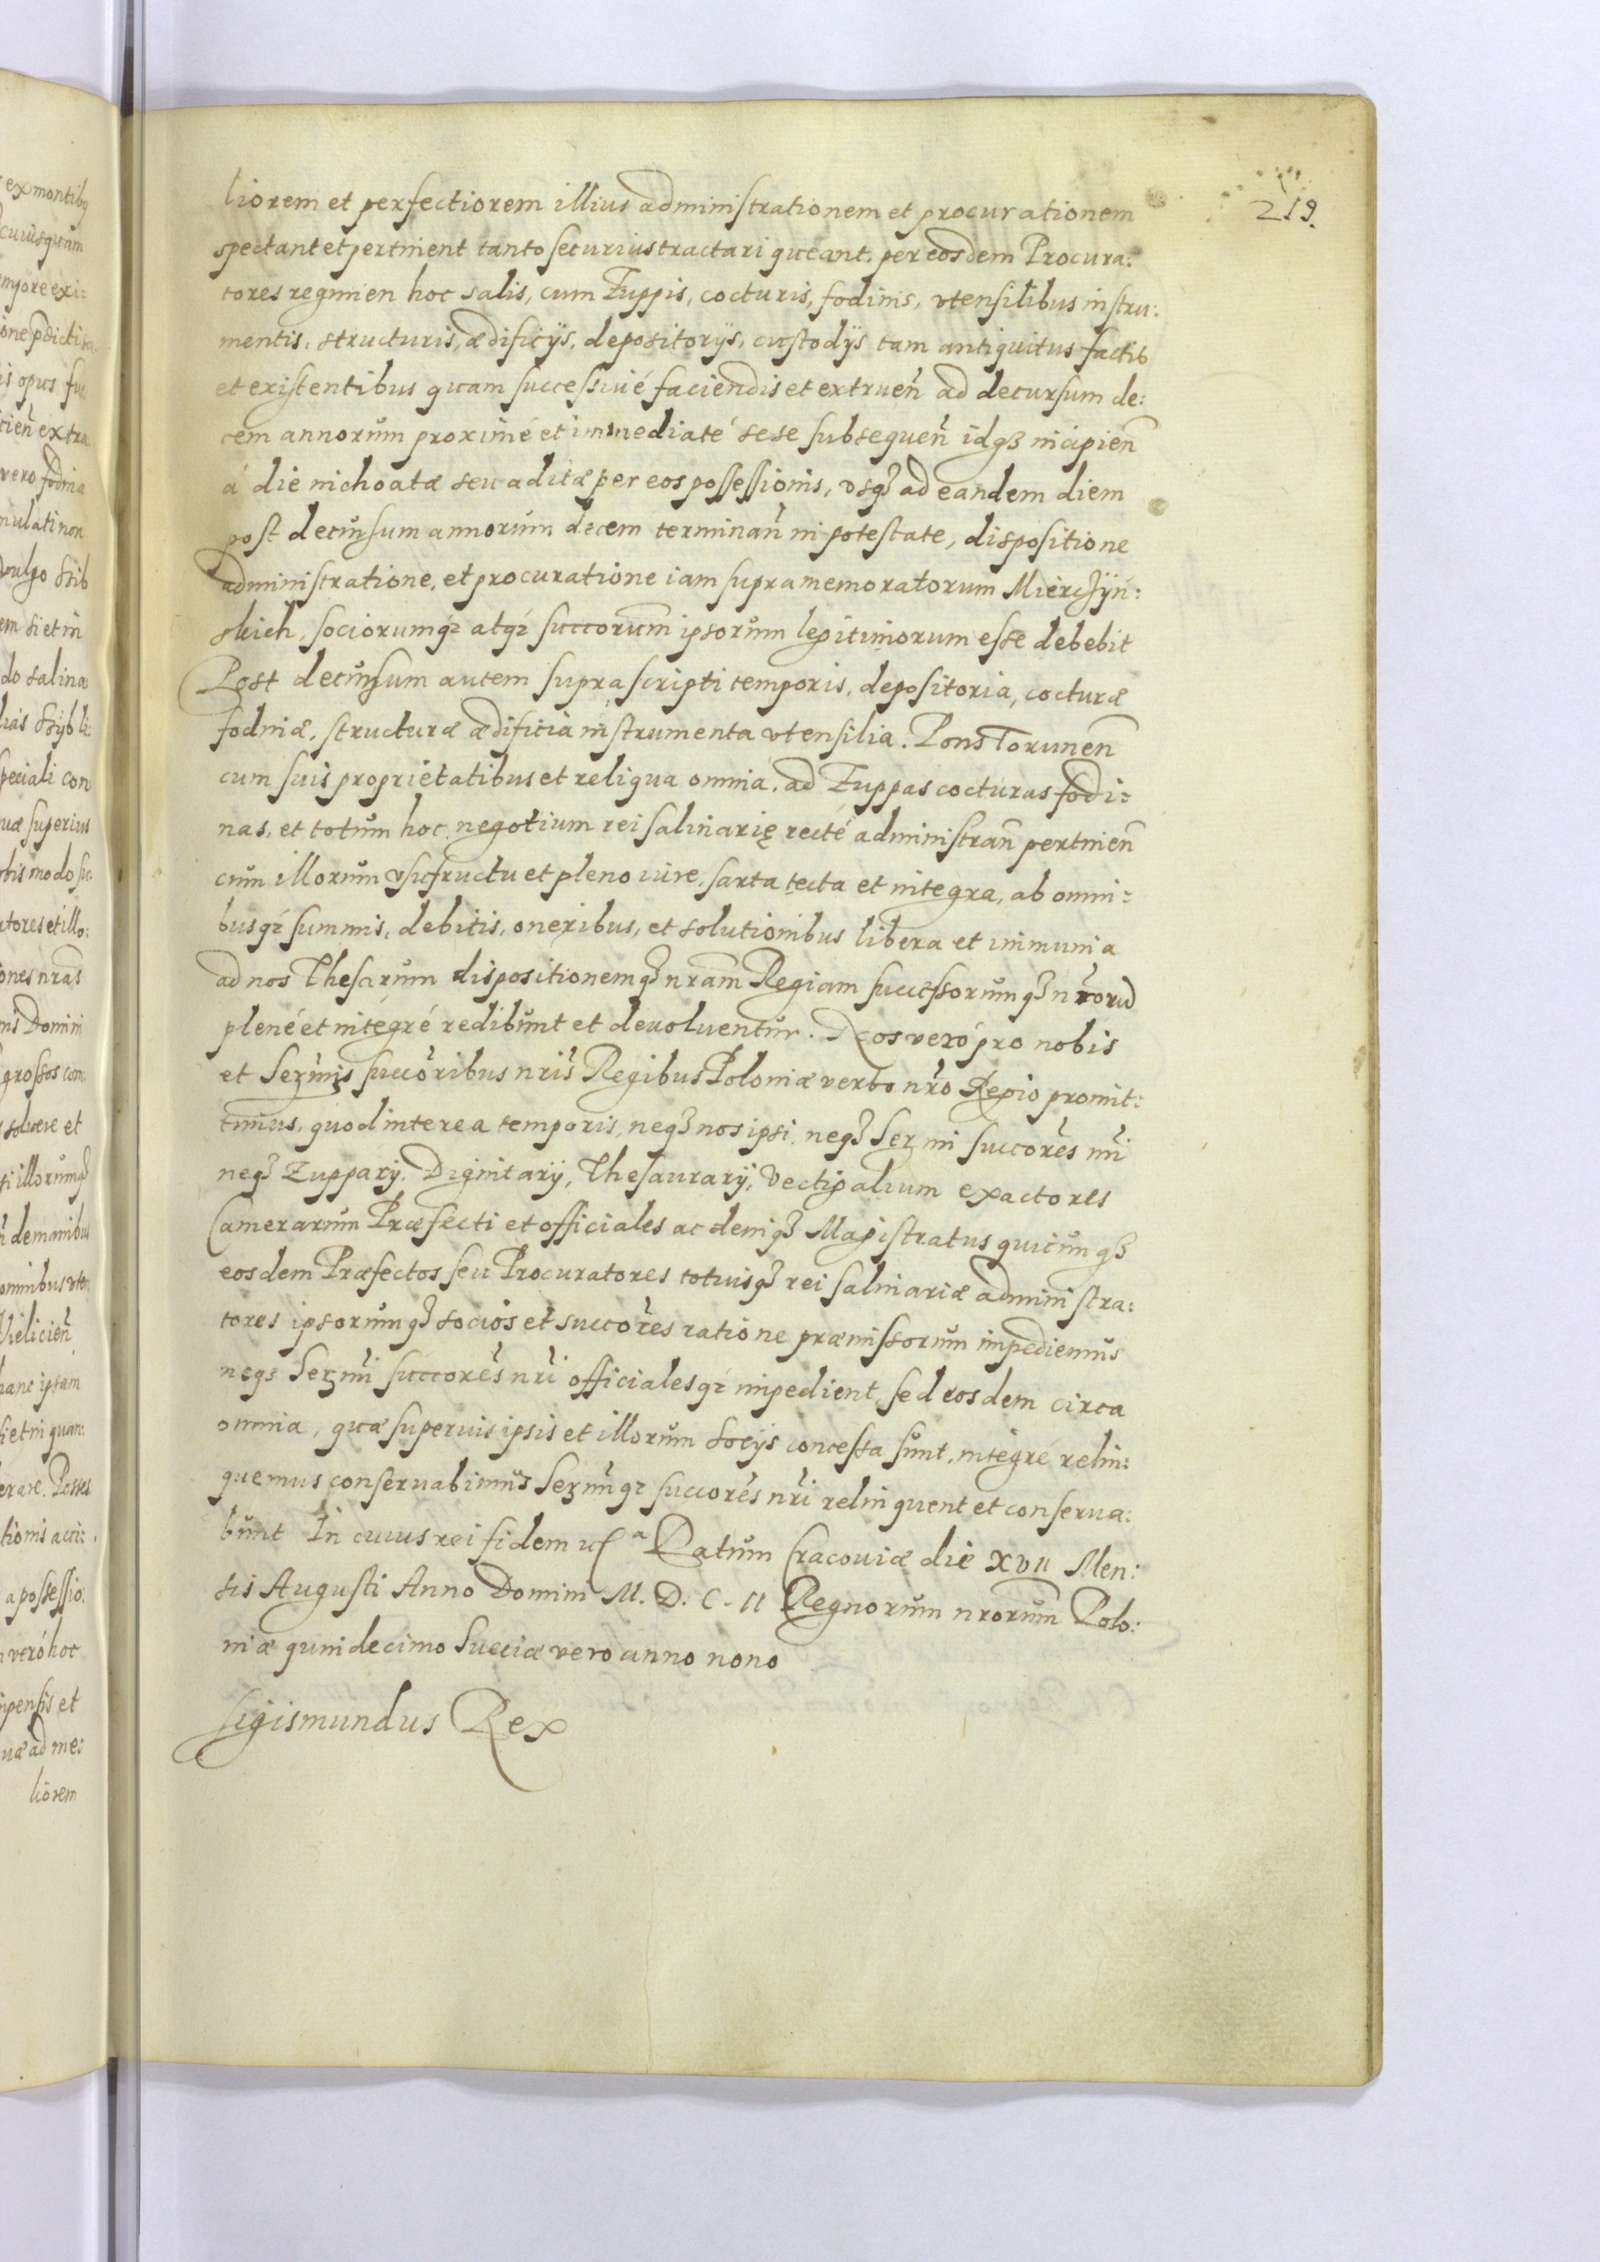 219.
liorem et perfectiorem illius administrationem et procurationem
spectant et pertinent tanto securius tractari queant, per eosdem Procura:
tores regimen hoc salis, cum Zuppis, cocturis, fodinis, vtensilibus instru:
mentis, structuris, ædificijs, depositorijs, custodijs tam antiquitus factis
et existentibus quam successiué faciendis et extruen̄ ad decursum de:
cem annorum proximé et immediaté sese subsequen̄ idqȝ incipien̄
á die inchoatæ seu aditæ per eos possessionis, vsqȝ ad eandem diem
post decursum annorum decem terminan̄ in potestate, dispositione
administratione, et procuratione iam supra memoratorum Mierczÿn:
skich, sociorumqȝ atqȝ succorum̄ ipsorum legitimorum esse debebit
Post decursum autem supra scripti temporis, depositoria, cocturæ
fodinæ, structuræ ædificia instrumenta vtensilia. Pons Torunen̄
cum suis proprietatibus et reliqua omnia, ad Zuppas cocturas fodi:
nas, et totum hoc negotium rei salinarię recté administran̄ pertinen̄
cum illorum vsufructu et pleno iure, sarta tecta et integra, ab omni:
busqȝ summis, debitis, oneribus, et solutionibus libera et immunia
ad nos Thesarum dispositionemqȝ nram̄ Regiam successorumqȝ nr̄orum
plené et integré redibunt et deuoluentur. Nos veró pro nobis
et Serm̄is succōribus nrīs Regibus Poloniæ verbo nr̄o Regio promit:
timus, quod interea temporis, neqȝ nos ipsi, neqȝ Serm̄i succorēs nr̄i
neqȝ Zupparij, Dignitarij, Thesaurarij, Vectigalium exactores
Camerarum Præfecti et officiales ac deniqȝ Magistratus quicunqȝ
eosdem Præfectos seu Procuratores totiusqȝ rei salinariæ administra:
tores ipsorumqȝ socios et succorēs ratione præmissorum impediemus
neqȝ Serm̄i succorēs nr̄i officialesqȝ impedient, sed eosdem circa
omnia, quæ superius ipsis et illorum socijs concessa sunt, integré relin:
quemus conseruabimus Serm̄iqȝ succorēs nr̄i relinquent et conserua:
bunt In cuius rei fidem ᵃ Datum Cracouiæ die XVII Men:
sis Augusti Anno Domini M. D. C. II Regnorum nrorum̄ Polo:
niæ quindecimo Sueciæ vero anno nono
Sigismundus Rex